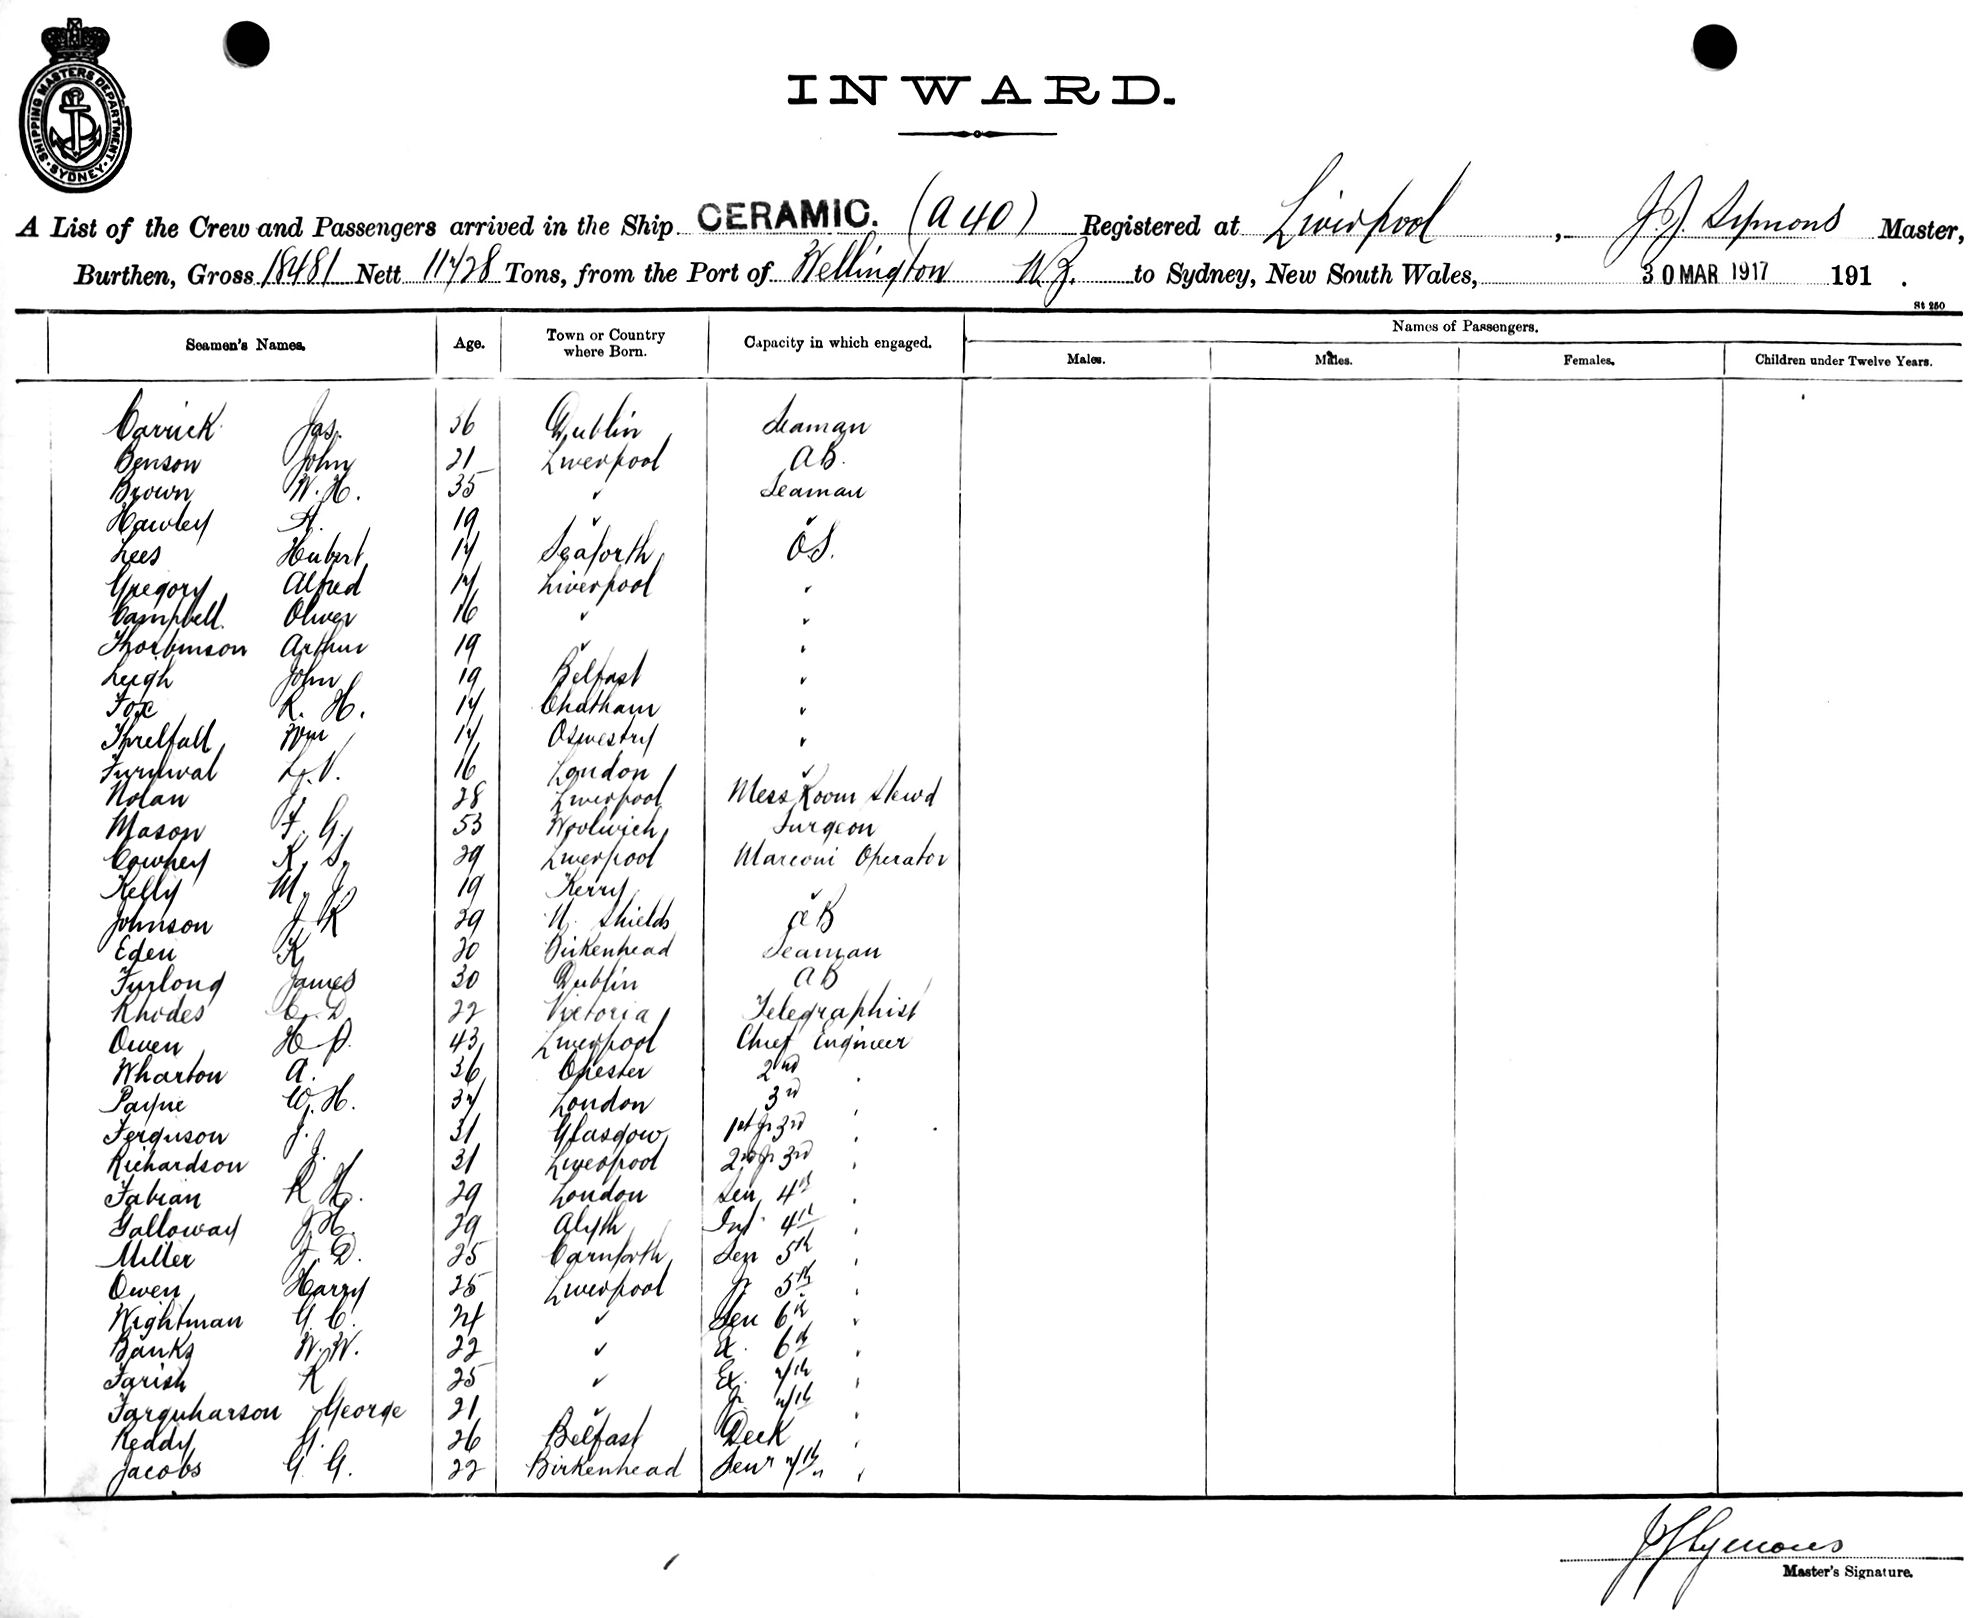 SHIPPING MASTERS DEPARTMENT. SYDNEY
INWARD.
A List of the Crew and Passengers arrived in the Ship CERAMIC. (A 40) Registered at Liverpool, J. J. Symons Master,
Burthen, Gross 18481 Nett 11728 Tons, from the Port of Wellington N Z. to Sydney, New South Wales, 30 MAR 1917 191 .
St 250
Names of Passengers.
Seamen's Names. Age. Town or Country where Born. Capacity in which engaged. Males. Males. Females. Children under Twelve Years.
Carrick Jas. 36 Dublin Seaman
Benson John 21 Liverpool AB.
Brown W. H. 35 " Seaman
Hawley A. 19 " "
Lees Hubert 17 Seaforth OS.
Gregory Alfred 17 Liverpool "
Campbell Oliver 16 " "
Thorbinson Arthur 19 " "
Leigh John 19 Belfast "
Fox R. H. 17 Chatham "
Threlfall Wm 17 Oswestry "
Furnival L. V. 16 London "
Nolan J. 28 Liverpool Mess Room Stewd
Mason F. G. 53 Woolwich Surgeon
Cowhey R. S. 29 Liverpool Marconi Operator
Kelly M. J. 19 Kerry "
Johnson J R 29 N. Shields AB
Eden R 20 Birkenhead Seaman
Furlong James 30 Dublin AB
Rhodes C. D. 22 Victoria Telegraphist
Owen H P. 43 Liverpool Chief Engineer
Wharton A. 36 Chester 2nd "
Payne W. H. 37 London 3rd "
Ferguson J. 31 Glasgow 1st Jr 3rd "
Richardson J. 31 Liverpool 2nd Jr 3rd "
Fabian R H. 29 London Sen 4th "
Galloway J. H. 29 Alyth Int 4th "
Miller J. D. 25 Carnforth Sen 5th "
Owen Harry 25 Liverpool Jr 5th "
Wightman G. C. 24 " Sen 6th "
Banks W. W. 22 " 6th "
Farish R 25 " Ex. 7th "
Farquharson George 21 " Jr 7th "
Reddy 26 Belfast Deck "
Jacobs G. G. 22 Birkenhead Senr 7th "
J J Symons
Master's Signature.